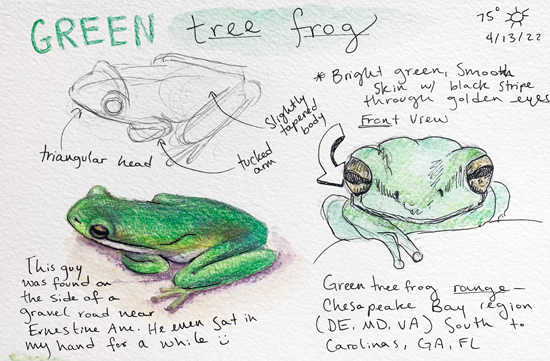 GREEN tree frog
75° 
4/13/22
* Bright green, Smooth
Skin w/ black stripe
through golden eyes
Front View
Slightly
tapered
body
triangular head
tucked
arm
This guy
was found on
the side of a
gravel road near
Ernestine Ave. He even sat in
my hand for a while
Green tree frog range –
Chesapeake Bay region
(DE, MD, VA) South to
Carolinas, GA, FL